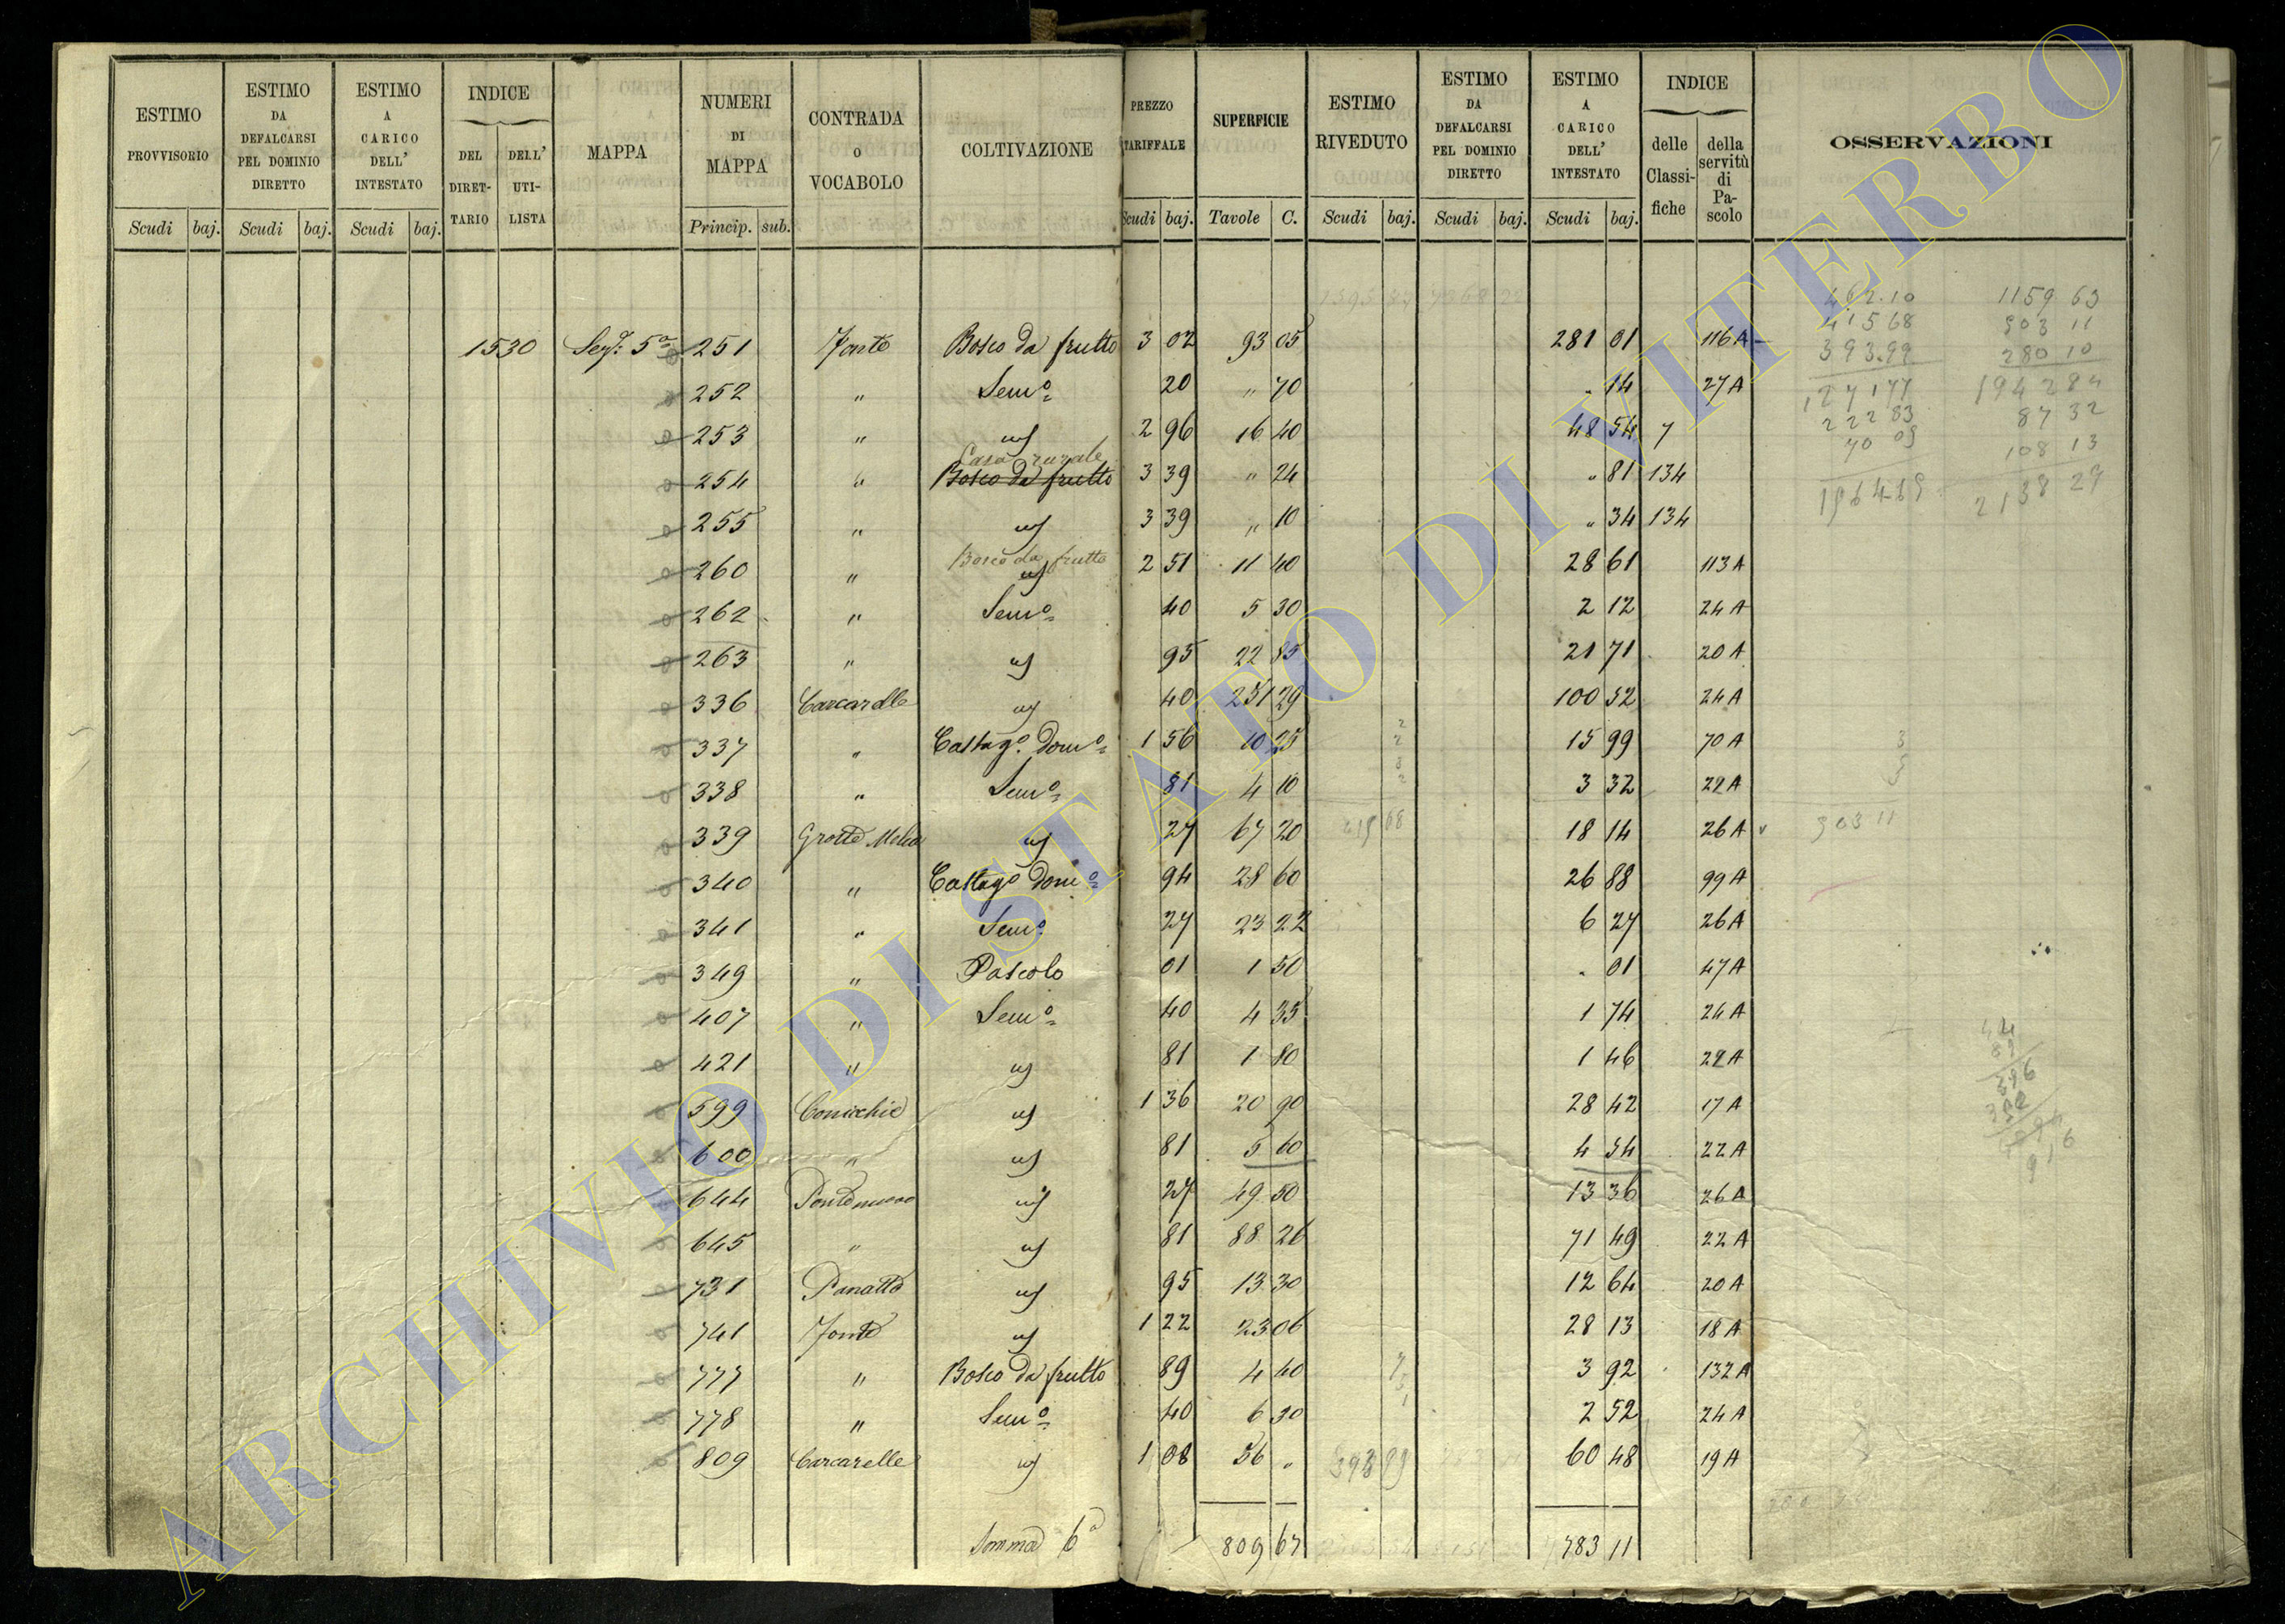 ESTIMO PROVVISORIO | ESTIMO DA DEFALCARSI PEL DOMINIO DIRETTO | ESTIMO A CARICO DELL' INTESTATO | INDICE DEL DIRETTARIO | DELL' UTILISTA | MAPPA | NUMERI DI MAPPA | CONTRADA O VOCABOLO | COLTIVAZIONE | PREZZO TARIFFALE | SUPERFICIE | ESTIMO RIVEDUTO | ESTIMO DA DEFALCARSI PEL DOMINIO DIRETTO | ESTIMO A CARICO DELL' INTESTATO | INDICE delle Classifiche | della servitù di Pascolo | OSSERVAZIONI
Scudi baj. | Scudi baj. | Scudi baj. | Princip. sub. | Scudi baj. | Tavole C. | Scudi baj. | Scudi baj. | Scudi baj.
1530 Sez.e 5a 251 Fonte Bosco da frutto 3 02 93 05 281 01 116 A
252 " Semo 20 " 70 " 14 27 A
253 " " 2 96 16 40 48 54 7
Casa rurale
254 " Bosco da frutto 3 39 " 24 " 81 134
255 " " 3 39 " 10 " 34 134
Bosco da frutto
260 " " 2 51 11 40 28 61 113 A
262 " Semo 40 5 30 2 12 24 A
263 " " 95 22 85 21 71 20 A
336 Carcarelle " 40 251 29 100 52 24 A
337 " Castago domo 1 56 10 25 15 99 70 A
338 " Semo 81 4 10 3 32 22 A
339 Grotte " 27 67 20 18 14 26 A 303 11
340 " Castago domo 94 28 60 26 88 99 A
341 " Semo 27 23 22 6 27 26 A
349 " Pascolo 01 1 50 " 01 47 A
407 " Semo 40 4 35 1 74 24 A
421 " " 81 1 80 1 46 22 A
599 Conicchie " 1 36 20 90 28 42 17 A
600 " " 81 5 60 4 54 22 A
644 " 27 49 50 13 36 26 A
645 " " 81 88 26 71 49 22 A
731 Panatta " 95 13 30 12 64 20 A
741 Fonte " 1 22 23 06 28 13 18 A
777 " Bosco da frutto 89 4 40 3 92 132 A
778 " Semo 40 6 30 2 52 24 A
809 Carcarelle " 1 08 56 " 393 99 60 48 19 A
Somma 6a 809 67 783 11
1159 63
415 68 503 11
393.99 280 10
1942 84
222 83 87 32
70 05 108 13
2138 29
ARCHIVIO DI STATO DI VITERBO